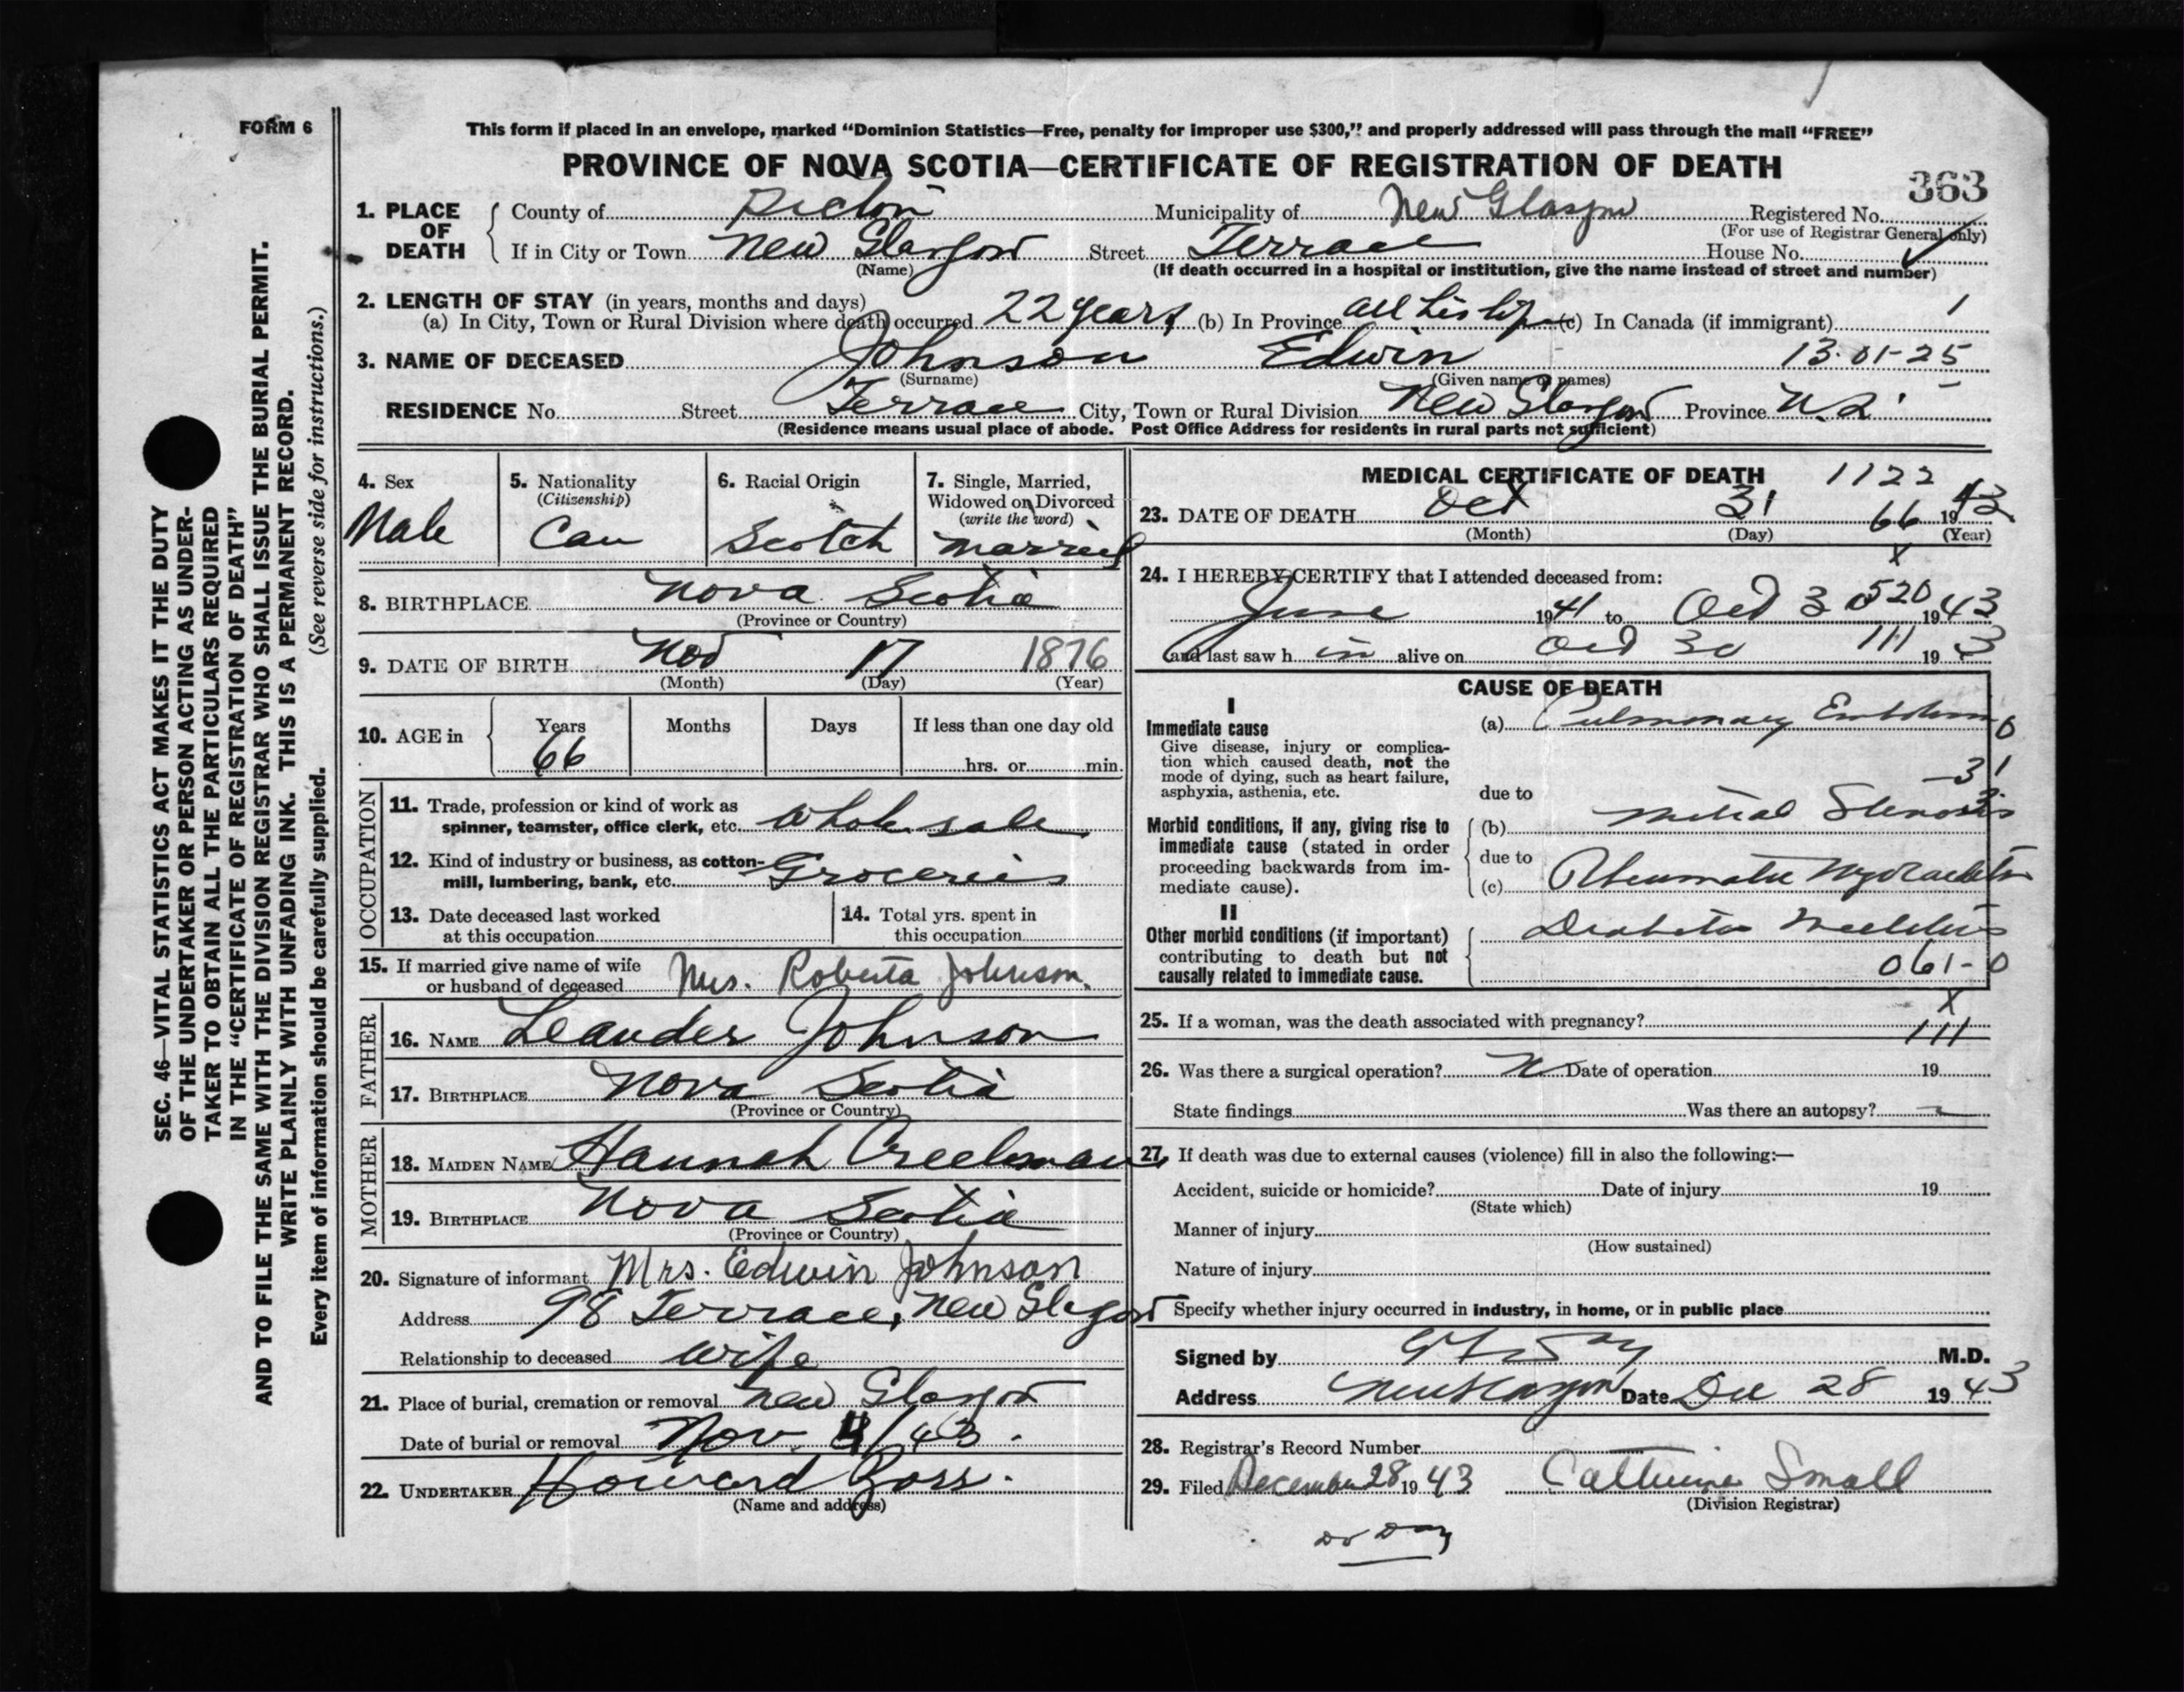 FORM 6
This form if placed in an envelope, marked “Dominion Statistics—Free, penalty for improper use $300,” and properly addressed will pass through the mail “FREE”
PROVINCE OF NOVA SCOTIA—CERTIFICATE OF REGISTRATION OF DEATH
363
1. PLACE OF DEATH
County of Pictou Municipality of New Glasgow Registered No.
(For use of Registrar General only)
If in City or Town New Glasgow Street Terrace House No.
(Name) (If death occurred in a hospital or institution, give the name instead of street and number)
2. LENGTH OF STAY (in years, months and days)
(a) In City, Town or Rural Division where death occurred 22 years (b) In Province all his life (c) In Canada (if immigrant) 1
3. NAME OF DECEASED Johnson Edwin 13-01-25
(Surname) (Given name or names)
RESIDENCE No. Street Terrace City, Town or Rural Division New Glasgow Province N.S.
(Residence means usual place of abode. Post Office Address for residents in rural parts not sufficient)
4. Sex
Male
5. Nationality
(Citizenship)
Can
6. Racial Origin
Scotch
7. Single, Married,
Widowed or Divorced
(write the word)
Married
8. BIRTHPLACE Nova Scotia
(Province or Country)
9. DATE OF BIRTH Nov 17 1876
(Month) (Day) (Year)
10. AGE in
Years Months Days If less than one day old
66 hrs. or min.
OCCUPATION
11. Trade, profession or kind of work as
spinner, teamster, office clerk, etc. Wholesale
12. Kind of industry or business, as cotton-
mill, lumbering, bank, etc. Groceries
13. Date deceased last worked
at this occupation
14. Total yrs. spent in
this occupation
15. If married give name of wife
or husband of deceased Mrs. Roberta Johnson.
FATHER
16. NAME Leander Johnson
17. BIRTHPLACE Nova Scotia
(Province or Country)
MOTHER
18. MAIDEN NAME Hannah Creelman
19. BIRTHPLACE Nova Scotia
(Province or Country)
20. Signature of informant Mrs. Edwin Johnson
Address 98 Terrace, New Glasgow
Relationship to deceased wife
21. Place of burial, cremation or removal New Glasgow
Date of burial or removal Nov. /43.
22. UNDERTAKER Howard Ross.
(Name and address)
MEDICAL CERTIFICATE OF DEATH 1122
23. DATE OF DEATH Oct 31 66 1943
(Month) (Day) (Year)
X
24. I HEREBY CERTIFY that I attended deceased from:
520
June 1941 to Oct 30 1943
and last saw him alive on Oct 30 111 193
CAUSE OF DEATH
I
Immediate cause
Give disease, injury or complica-
tion which caused death, not the
mode of dying, such as heart failure,
asphyxia, asthenia, etc.
(a) Pulmonary Embolism 0
-31
due to
Morbid conditions, if any, giving rise to
immediate cause (stated in order
proceeding backwards from im-
mediate cause).
(b) Mitral Stenosis
due to
(c) Rheumatic Myocarditis
II
Other morbid conditions (if important)
contributing to death but not
causally related to immediate cause.
Diabetes Mellitus
061-0
X
25. If a woman, was the death associated with pregnancy? 111
26. Was there a surgical operation? N Date of operation 19
State findings Was there an autopsy?
27. If death was due to external causes (violence) fill in also the following:—
Accident, suicide or homicide? Date of injury 19
(State which)
Manner of injury
(How sustained)
Nature of injury
Specify whether injury occurred in industry, in home, or in public place
Signed by M.D.
Address New Glasgow Date Dec 28 1943
28. Registrar's Record Number
29. Filed December 28 1943 Catherine Small
(Division Registrar)
Dr Day
SEC. 46—VITAL STATISTICS ACT MAKES IT THE DUTY
OF THE UNDERTAKER OR PERSON ACTING AS UNDER-
TAKER TO OBTAIN ALL THE PARTICULARS REQUIRED
IN THE “CERTIFICATE OF REGISTRATION OF DEATH”
AND TO FILE THE SAME WITH THE DIVISION REGISTRAR WHO SHALL ISSUE THE BURIAL PERMIT.
WRITE PLAINLY WITH UNFADING INK. THIS IS A PERMANENT RECORD.
Every item of information should be carefully supplied. (See reverse side for instructions.)